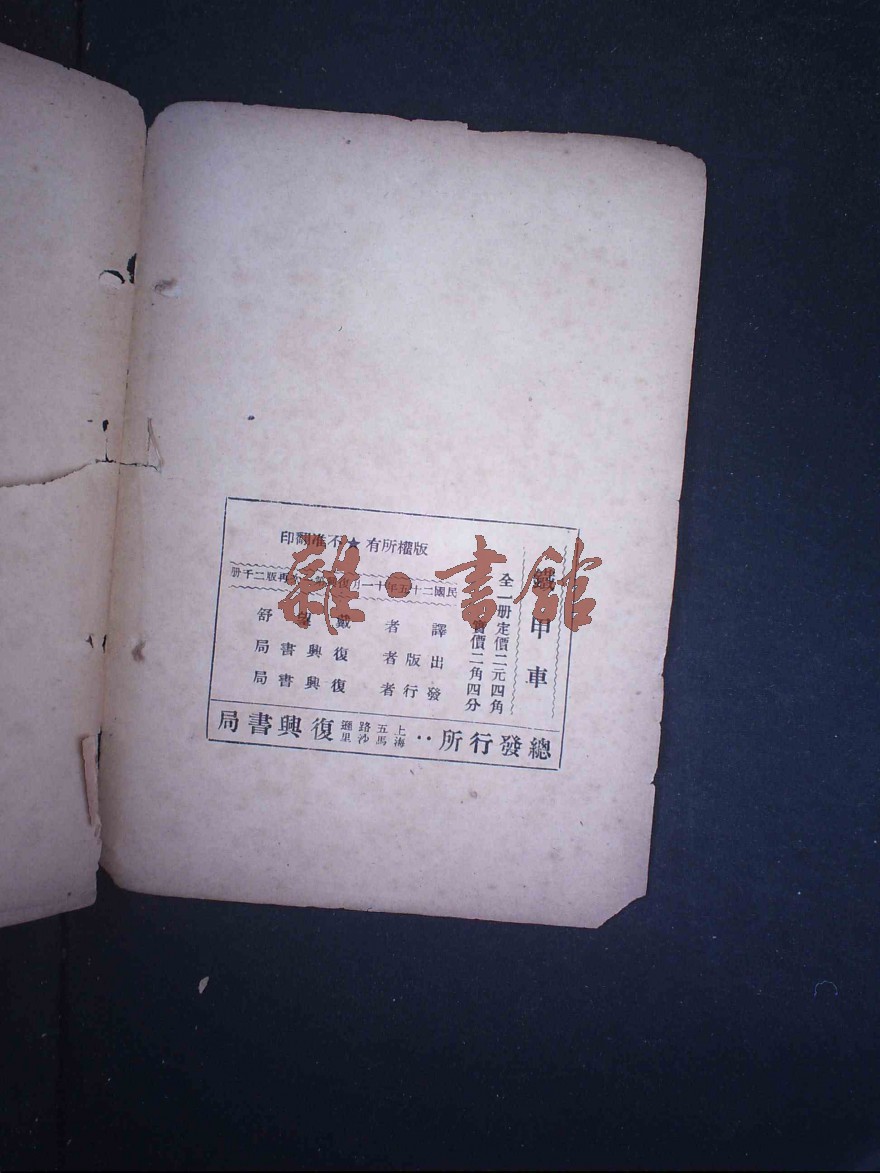 鐵甲車
全一册定價二元四角
實價二角四分
版權所有★不准翻印
民國二十五年十一月復興第一次再版二千册
譯者 戴望舒
出版者 復興書局
發行者 復興書局
總發行所：上海五馬路沙遜里 復興書局
雜·書館